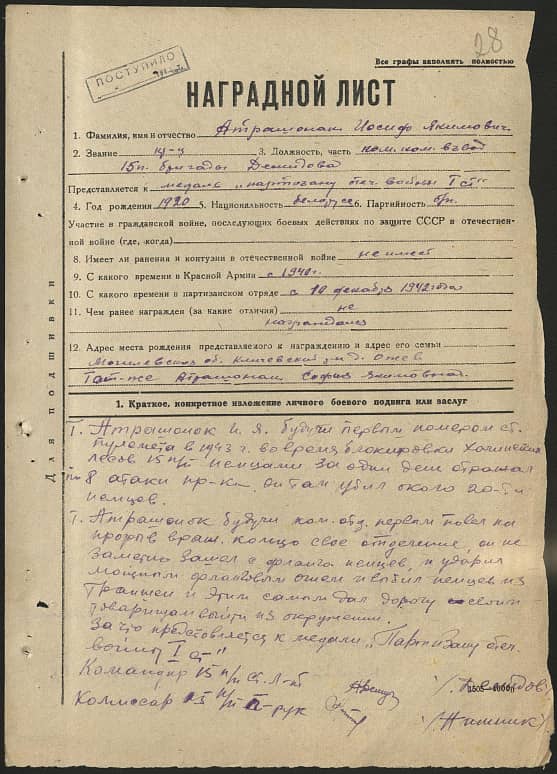 28
Все графы заполнять полностью
ПОСТУПИЛО
НАГРАДНОЙ ЛИСТ
1. Фамилия, имя и отчество Атрашонак Иосиф Якимович
2. Звание 3. Должность, часть ком. взвод
15 п. бригады Демидова
Представляется к медаль „партизану отеч. войны I ст"
4. Год рождения 1920 5. Национальность белорусс 6. Партийность б/п.
Участие в гражданской войне, последующих боевых действиях по защите СССР в отечествен-
ной войне (где, когда)
8. Имеет ли ранения и контузии в отечественной войне не имеет
9. С какого времени в Красной Армии с 1940 г.
10. С какого времени в партизанском отряде с 10 декабря 1942 года
11. Чем ранее награжден (за какие отличия) не
награждался
12. Адрес места рождения представляемого к награждению и адрес его семьи
Могилевская об. Кличевский д.
Там-же Атрашонак София Якимовна.
Для подшивки
1. Краткое, конкретное изложение личного боевого подвига или заслуг
I. Атрашонок И. Я. будучи первым номером ст.
пулемета в 1943 г. во время блокировки
лесов 15 п/п немцами за один день отражал
8 атаки пр-ка. он там убил около 20-ти
немцев.
Атрашонок будучи ком. отд. первым повел на
прорыв враж. кольцо свое отделение, он не
заметно зашел с фланга немцев, и ударил
мощным фланговым огнем и выбил немцев из
траншеи и этим самым дал дорогу своим
товарищам выйти из окружения.
За что представляется к медали „Партизану отеч.
войны I ст"
Командир 15 п/п ст. л-т
Комиссар 15 п/п п-рук